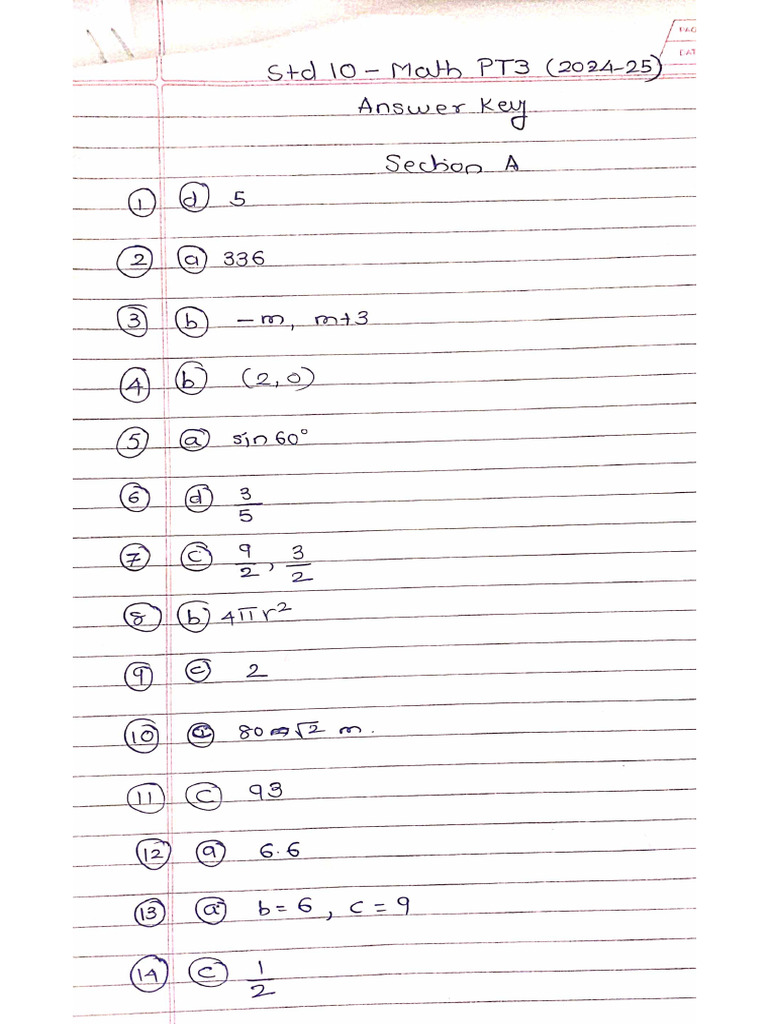 PAG
DAT
Std 10 - Math PT3 (2024-25)
Answer Key
Section A
1 d 5
2 a 336
3 b -m, m+3
4 b (2,0)
5 a sin 60°
6 d 3/5
7 c 9/2, 3/2
8 b 4πr²
9 c 2
10 80√2 m.
11 c 93
12 a 6.6
13 a b=6, c=9
14 c 1/2